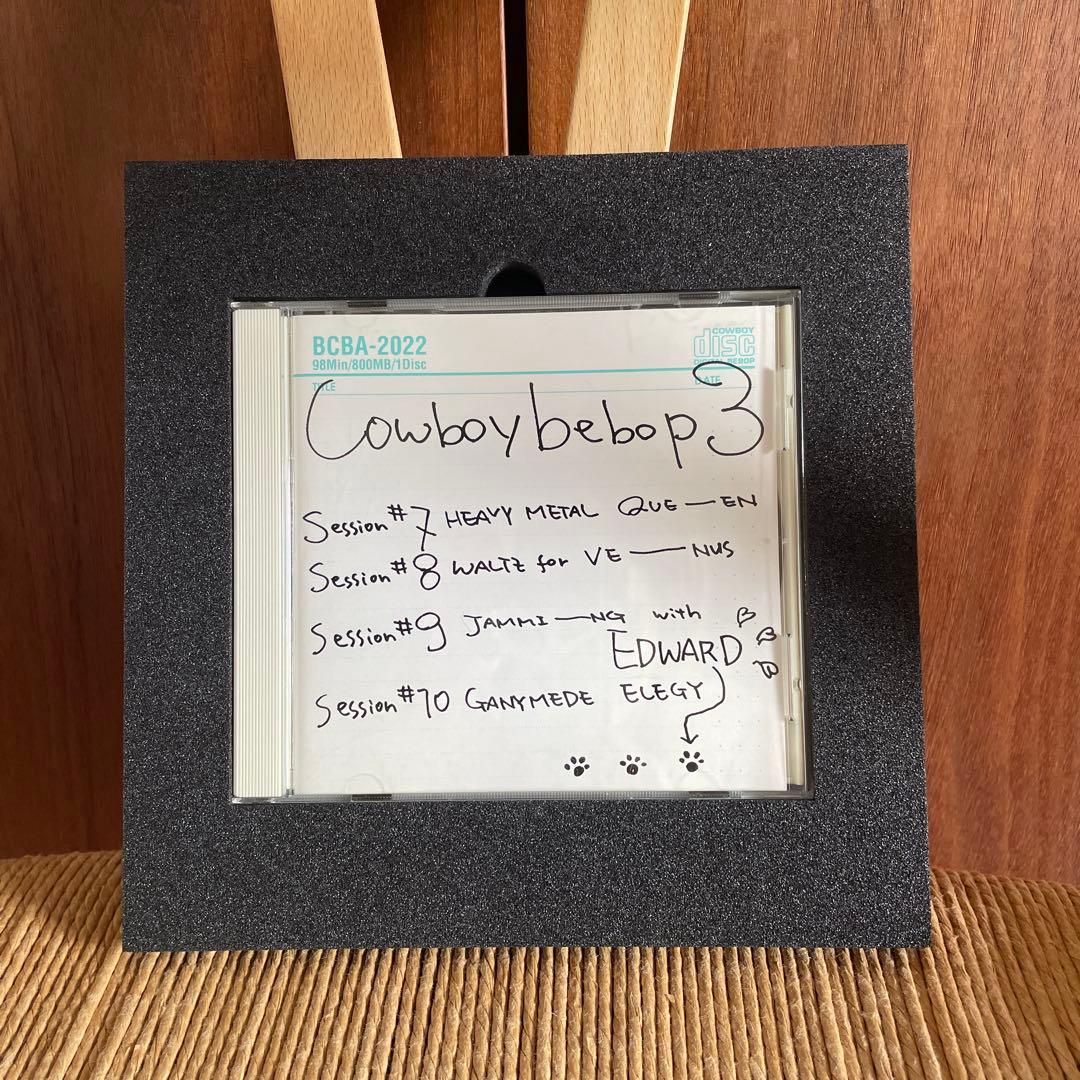 BCBA-2022
98Min/800MB/1Disc
COWBOY
disc
DIGITAL BEBOP
TITLE
DATE
Cowboy bebop 3
Session #7 HEAVY METAL QUE—EN
Session #8 WALTZ for VE—NUS
Session #9 JAMMI—NG with
EDWARD
Session #10 GANYMEDE ELEGY